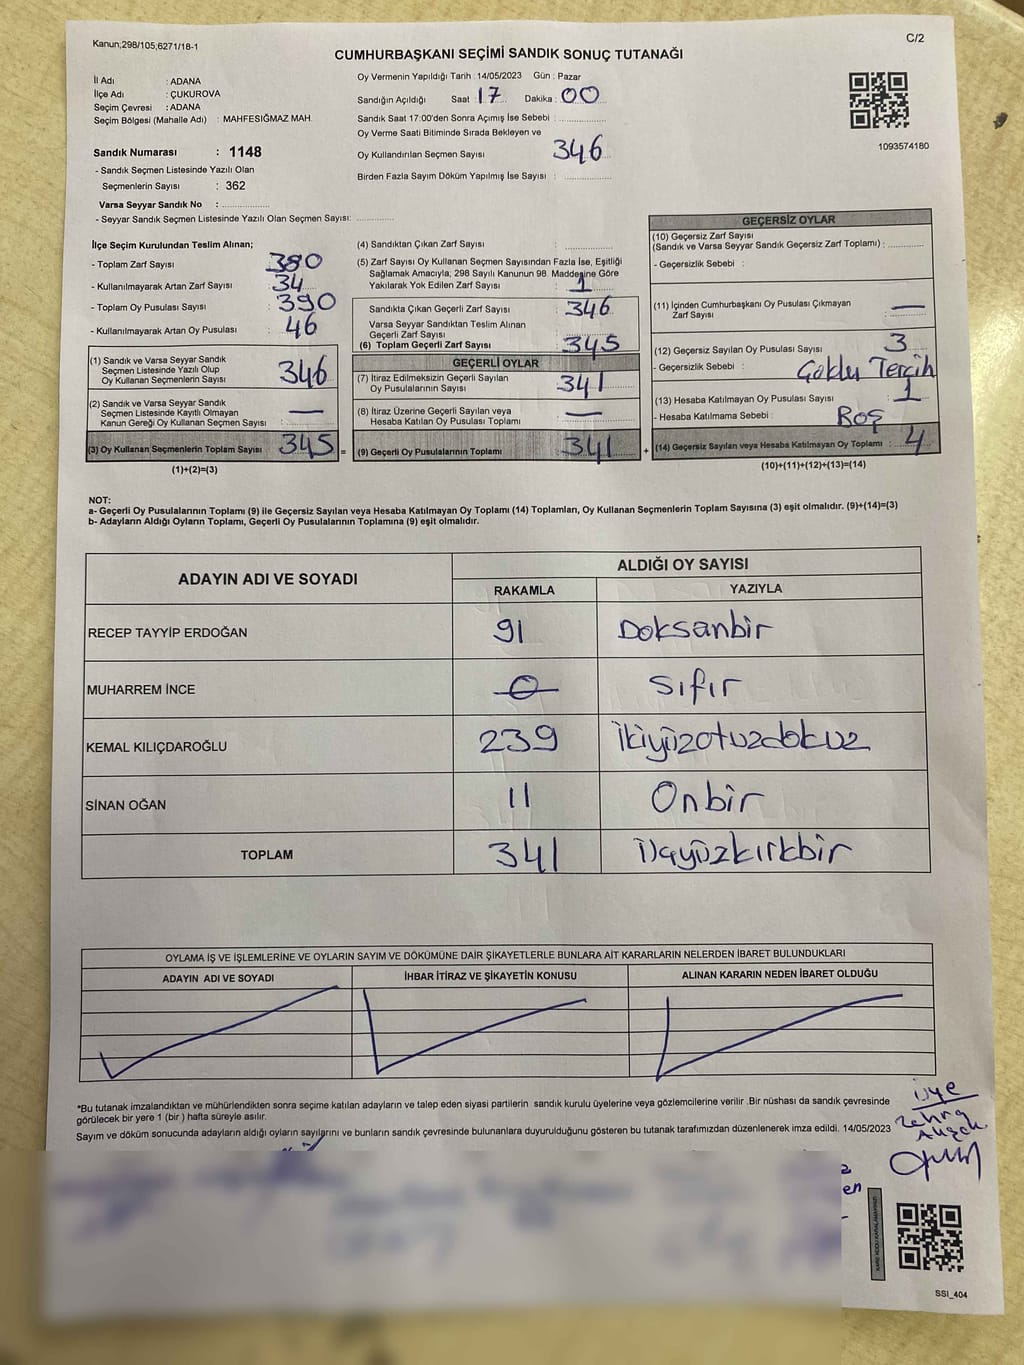 Kanun;298/105;6271/18-1
C/2
CUMHURBAŞKANI SEÇİMİ SANDIK SONUÇ TUTANAĞI
İl Adı : ADANA
İlçe Adı : ÇUKUROVA
Seçim Çevresi : ADANA
Seçim Bölgesi (Mahalle Adı) : MAHFESIĞMAZ MAH.
Sandık Numarası : 1148
- Sandık Seçmen Listesinde Yazılı Olan
Seçmenlerin Sayısı : 362
Varsa Seyyar Sandık No :
- Seyyar Sandık Seçmen Listesinde Yazılı Olan Seçmen Sayısı:
Oy Vermenin Yapıldığı Tarih : 14/05/2023 Gün : Pazar
Sandığın Açıldığı Saat 17 Dakika : 00
Sandık Saat 17:00'den Sonra Açımış İse Sebebi :
Oy Verme Saati Bitiminde Sırada Bekleyen ve
Oy Kullandırılan Seçmen Sayısı 346
Birden Fazla Sayım Döküm Yapılmış İse Sayısı :
1093574180
İlçe Seçim Kurulundan Teslim Alınan;
- Toplam Zarf Sayısı 380
- Kullanılmayarak Artan Zarf Sayısı : 34
- Toplam Oy Pusulası Sayısı : 390
- Kullanılmayarak Artan Oy Pusulası : 46
(1) Sandık ve Varsa Seyyar Sandık
Seçmen Listesinde Yazılı Olup
Oy Kullanan Seçmenlerin Sayısı : 346
(2) Sandık ve Varsa Seyyar Sandık
Seçmen Listesinde Kayıtlı Olmayan
Kanun Gereği Oy Kullanan Seçmen Sayısı : —
(3) Oy Kullanan Seçmenlerin Toplam Sayısı : 345 =
(1)+(2)=(3)
(4) Sandıktan Çıkan Zarf Sayısı :
(5) Zarf Sayısı Oy Kullanan Seçmen Sayısından Fazla İse, Eşitliği
Sağlamak Amacıyla, 298 Sayılı Kanunun 98. Maddesine Göre
Yakılarak Yok Edilen Zarf Sayısı : 1
Sandıkta Çıkan Geçerli Zarf Sayısı : 346
Varsa Seyyar Sandıktan Teslim Alınan
Geçerli Zarf Sayısı
(6) Toplam Geçerli Zarf Sayısı : 345
GEÇERLİ OYLAR
(7) İtiraz Edilmeksizin Geçerli Sayılan
Oy Pusulalarının Sayısı : 341
(8) İtiraz Üzerine Geçerli Sayılan veya
Hesaba Katılan Oy Pusulası Toplamı : —
(9) Geçerli Oy Pusulalarının Toplamı : 341 +
GEÇERSİZ OYLAR
(10) Geçersiz Zarf Sayısı
(Sandık ve Varsa Seyyar Sandık Geçersiz Zarf Toplamı) :
- Geçersizlik Sebebi :
(11) İçinden Cumhurbaşkanı Oy Pusulası Çıkmayan
Zarf Sayısı : —
(12) Geçersiz Sayılan Oy Pusulası Sayısı : 3
- Geçersizlik Sebebi : Çoklu Tercih
(13) Hesaba Katılmayan Oy Pusulası Sayısı : 1
- Hesaba Katılmama Sebebi : Boş
(14) Geçersiz Sayılan veya Hesaba Katılmayan Oy Toplamı : 4
(10)+(11)+(12)+(13)=(14)
NOT:
a- Geçerli Oy Pusulalarının Toplamı (9) ile Geçersiz Sayılan veya Hesaba Katılmayan Oy Toplamı (14) Toplamları, Oy Kullanan Seçmenlerin Toplam Sayısına (3) eşit olmalıdır. (9)+(14)=(3)
b- Adayların Aldığı Oyların Toplamı, Geçerli Oy Pusulalarının Toplamına (9) eşit olmalıdır.
ADAYIN ADI VE SOYADI
ALDIĞI OY SAYISI
RAKAMLA YAZIYLA
RECEP TAYYİP ERDOĞAN 91 Doksanbir
MUHARREM İNCE 0 sıfır
KEMAL KILIÇDAROĞLU 239 İkiyüzotuzdokuz
SİNAN OĞAN 11 Onbir
TOPLAM 341 Üçyüzkırkbir
OYLAMA İŞ VE İŞLEMLERİNE VE OYLARIN SAYIM VE DÖKÜMÜNE DAİR ŞİKAYETLERLE BUNLARA AİT KARARLARIN NELERDEN İBARET BULUNDUKLARI
ADAYIN ADI VE SOYADI İHBAR İTİRAZ VE ŞİKAYETİN KONUSU ALINAN KARARIN NEDEN İBARET OLDUĞU
*Bu tutanak imzalandıktan ve mühürlendikten sonra seçime katılan adayların ve talep eden siyasi partilerin sandık kurulu üyelerine veya gözlemcilerine verilir .Bir nüshası da sandık çevresinde
görülecek bir yere 1 (bir ) hafta süreyle asılır.
Sayım ve döküm sonucunda adayların aldığı oyların sayılarını ve bunların sandık çevresinde bulunanlara duyurulduğunu gösteren bu tutanak tarafımızdan düzenlenerek imza edildi. 14/05/2023
Üye
Zehra
en
SSI_404